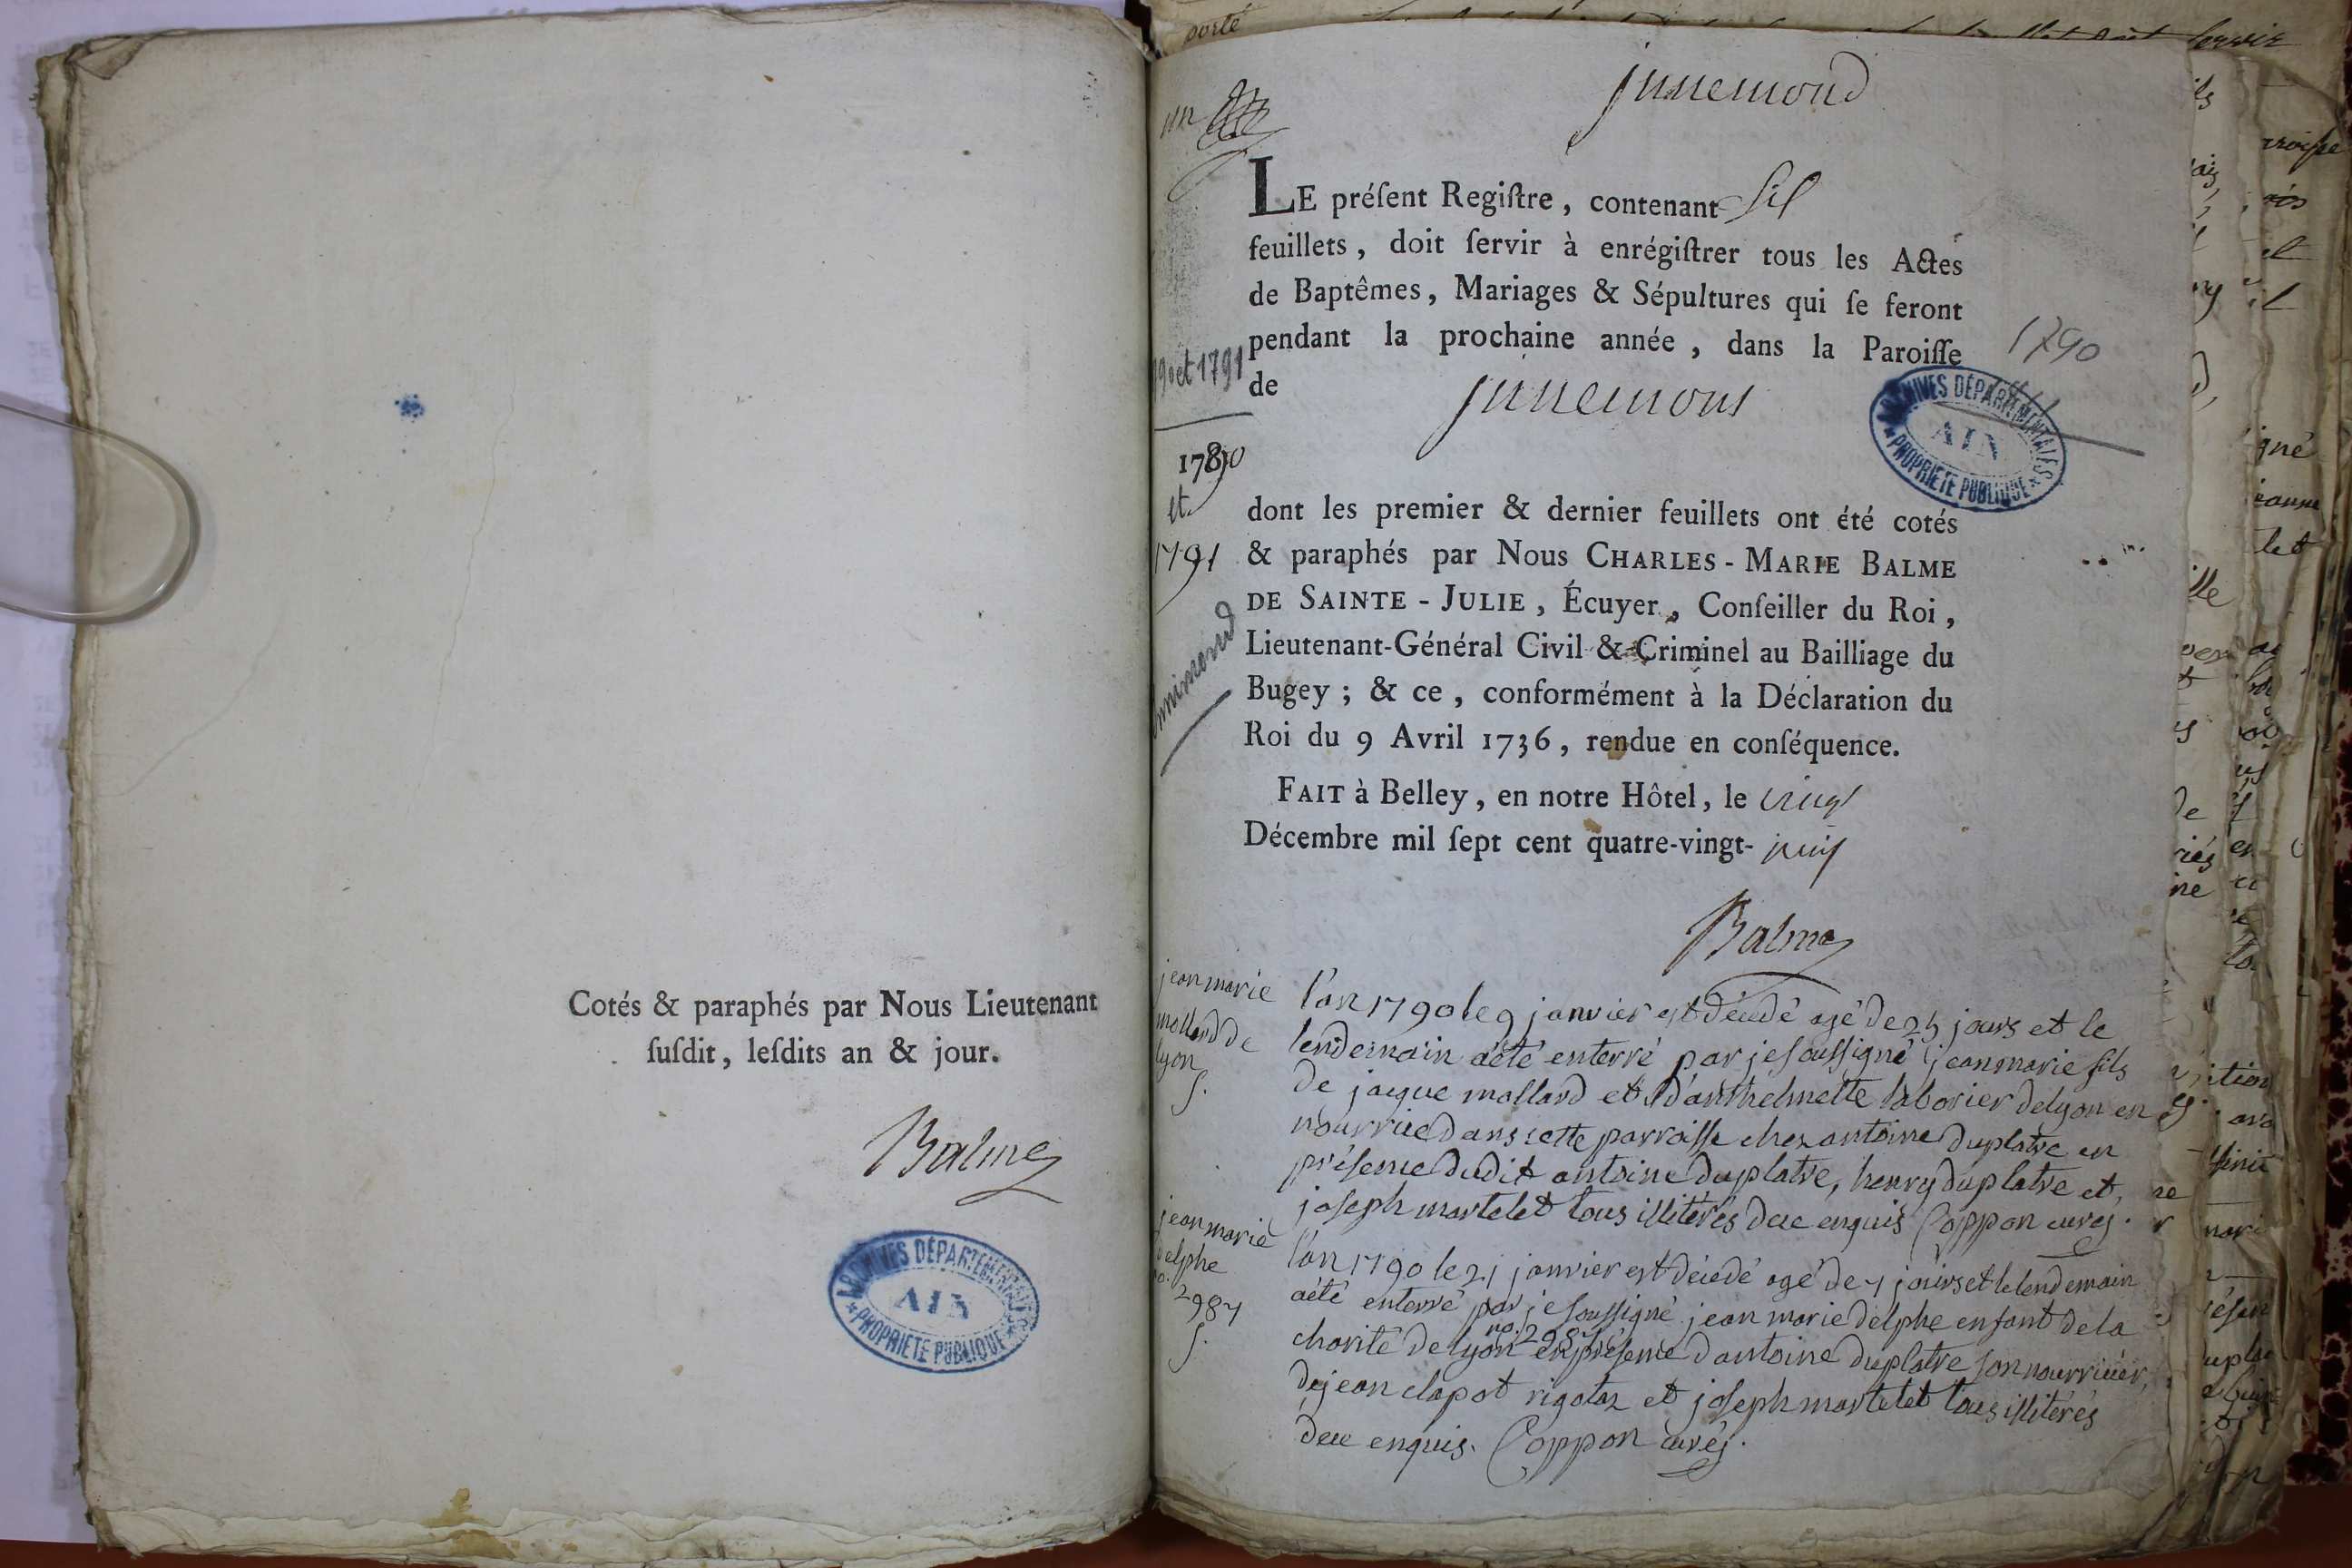 Cotés & paraphés par Nous Lieutenant
ſuſdit, leſdits an & jour.
Balme
ARCHIVES DÉPARTEMENTALES
AIN
PROPRIETE PUBLIQUE
un
LE préſent Regiſtre, contenant
feuillets, doit ſervir à enrégiſtrer tous les Actes
de Baptêmes, Mariages & Sépultures qui ſe feront
pendant la prochaine année, dans la Paroiſſe
de
1790
et 1791
ARCHIVES DÉPARTEMENTALES
AIN
PROPRIETE PUBLIQUE
1790
et
1791
dont les premier & dernier feuillets ont été cotés
& paraphés par Nous CHARLES-MARIE BALME
DE SAINTE-JULIE, Écuyer, Conſeiller du Roi,
Lieutenant-Général Civil & Criminel au Bailliage du
Bugey; & ce, conformément à la Déclaration du
Roi du 9 Avril 1736, rendue en conſéquence.
FAIT à Belley, en notre Hôtel, le vingt
Décembre mil ſept cent quatre-vingt-
Balme
jean marie
mollard de
lyon
S.
l'an 1790 le 9 janvier est décédé agé de 25 jours et le
lendemain a été enterré par je soussigné jean marie fils
de jacque mollard et d'anthelmette laborier de lyon en
nourrice dans cette parroisse chez antoine duplatre en
présence dudit antoine duplatre, henry duplatre et
joseph martelet tous illitérés de ce enquis Coppon curé.
jean marie
delphe
no.
2987
S.
l'an 1790 le 21 janvier est décédé agé de 7 jours et le lendemain
a été enterré par je soussigné jean marie delphe enfant de la
charité de lyon no. 2987 en présence d'antoine duplatre son nourricier,
de jean clapot rigolaz et joseph martelet tous illitérés
de ce enquis. Coppon curé.